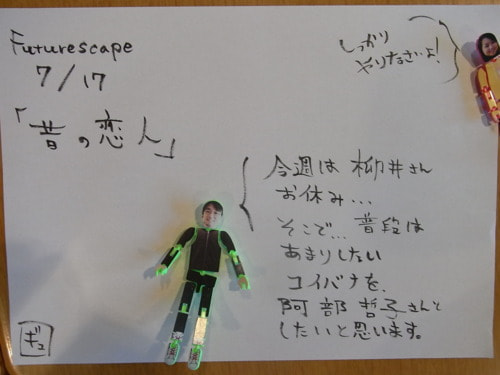 Futurescape
7/17
「昔の恋人」
しっかり
やりなさいよ!
今週は 柳井さん
お休み...
そこで... 普段は
あまりしない
コイバナを、
阿部 哲子さんと
したいと思います。
ギュ